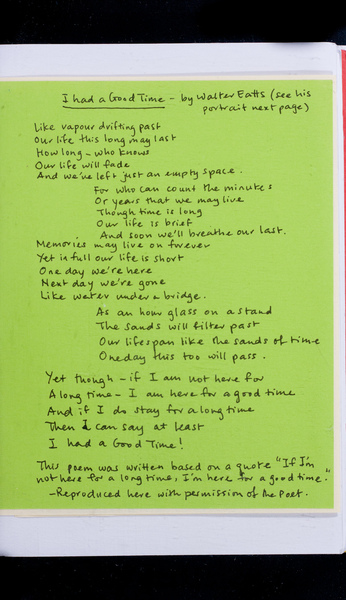 I had a Good Time - by Walter Eatts (see his
portrait next page)
Like vapour drifting past
Our life this long may last
How long - who knows
Our life will fade
And we've left just an empty space.
For who can count the minutes
Or years that we may live
Though time is long
Our life is brief
And soon we'll breathe our last.
Memories may live on forever
Yet in full our life is short
One day we're here
Next day we're gone
Like water under a bridge.
As an hour glass on a stand
The sands will filter past
Our lifespan like the sands of time
One day this too will pass.
Yet though - if I am not here for
A long time - I am here for a good time
And if I do stay for a long time
Then I can say at least
I had a Good Time!
This poem was written based on a quote "If I'm
not here for a long time, I'm here for a good time."
- Reproduced here with permission of the Poet.